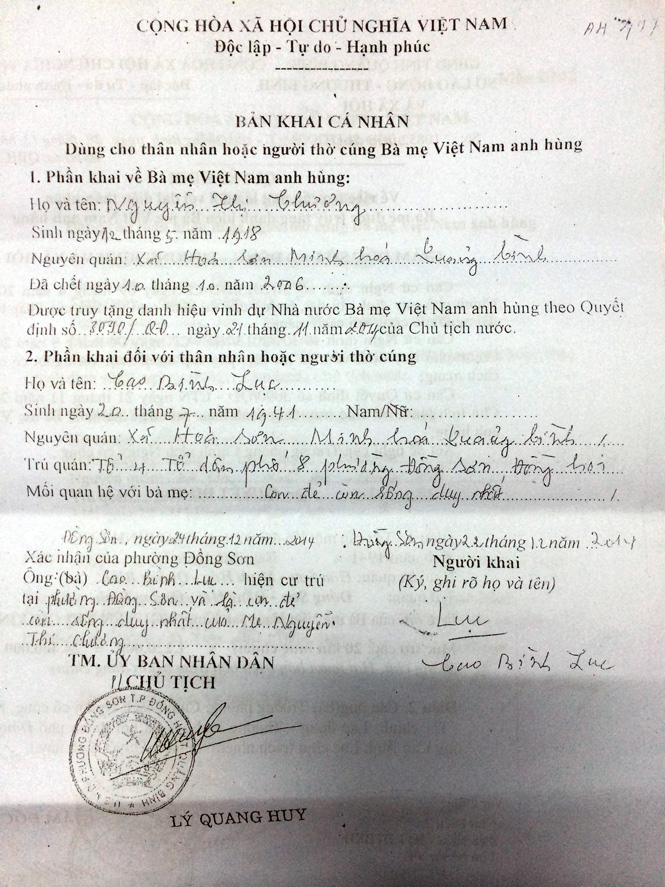 CỘNG HÒA XÃ HỘI CHỦ NGHĨA VIỆT NAM
Độc lập - Tự do - Hạnh phúc
BẢN KHAI CÁ NHÂN
Dùng cho thân nhân hoặc người thờ cúng Bà mẹ Việt Nam anh hùng
1. Phần khai về Bà mẹ Việt Nam anh hùng:
Họ và tên: Nguyễn Thị Chương
Sinh ngày 12 tháng 5 năm 1918
Nguyên quán: Xã Hoá Sơn Minh hoá Quảng bình
Đã chết ngày 10 tháng 10 năm 2006
Được truy tặng danh hiệu vinh dự Nhà nước Bà mẹ Việt Nam anh hùng theo Quyết
định số 3090/QĐ ngày 21 tháng 11 năm 2014 của Chủ tịch nước.
2. Phần khai đối với thân nhân hoặc người thờ cúng
Họ và tên: Cao Bình Lục
Sinh ngày 20 tháng 7 năm 1941 Nam/Nữ:
Nguyên quán: Xã Hoá Sơn Minh hoá Quảng bình
Trú quán: Tổ 4 Tổ dân phố 8 phường Đồng Sơn Đồng hới
Mối quan hệ với bà mẹ: Con đẻ còn sống duy nhất
Đồng Sơn, ngày 24 tháng 12 năm 2014
Đồng Sơn ngày 22 tháng 12 năm 2014
Xác nhận của phường Đồng Sơn
Người khai
Ông (bà) Cao Bình Lục hiện cư trú
(Ký, ghi rõ họ và tên)
tại phường Đồng Sơn và là con đẻ
còn sống duy nhất của Mẹ Nguyễn
Thị Chương
Lục
Cao Bình Lục
TM. ỦY BAN NHÂN DÂN
CHỦ TỊCH
U.B.N.D PHƯỜNG ĐỒNG SƠN T.P ĐỒNG HỚI QUẢNG BÌNH
LÝ QUANG HUY